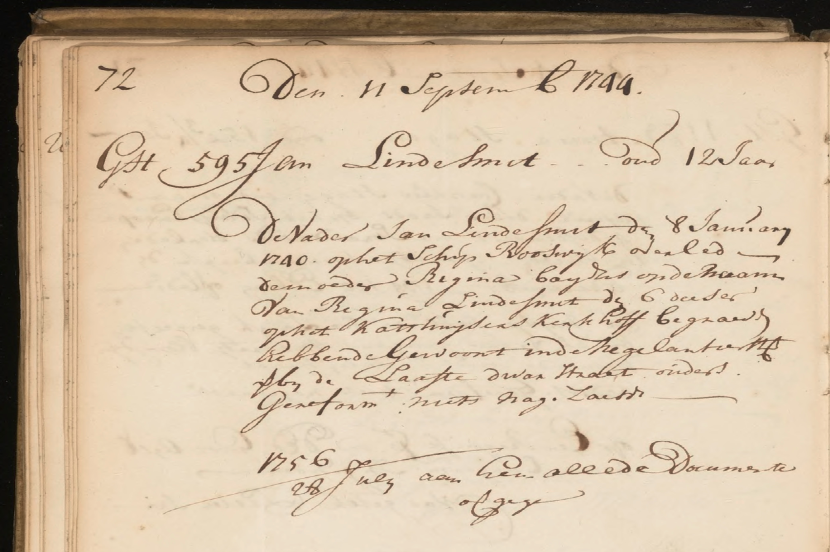 72 Den 11 Septemb 1744.
Gst 595 Jan Lindesmit .. oud 12 Jaar
De Vader Jan Lindesmit den 8 January
1740. op het Schip Rooswyk overled
de moeder Regina op de Naam
Van Regina Lindesmit den 6 deeser
op het Kerkhoff begraev
hebbende Gewoont in de
by de Laaste dwars straat ouders
Gereform niets nag. Laeten
1756
28 July aan hem alle de Documente
afgege